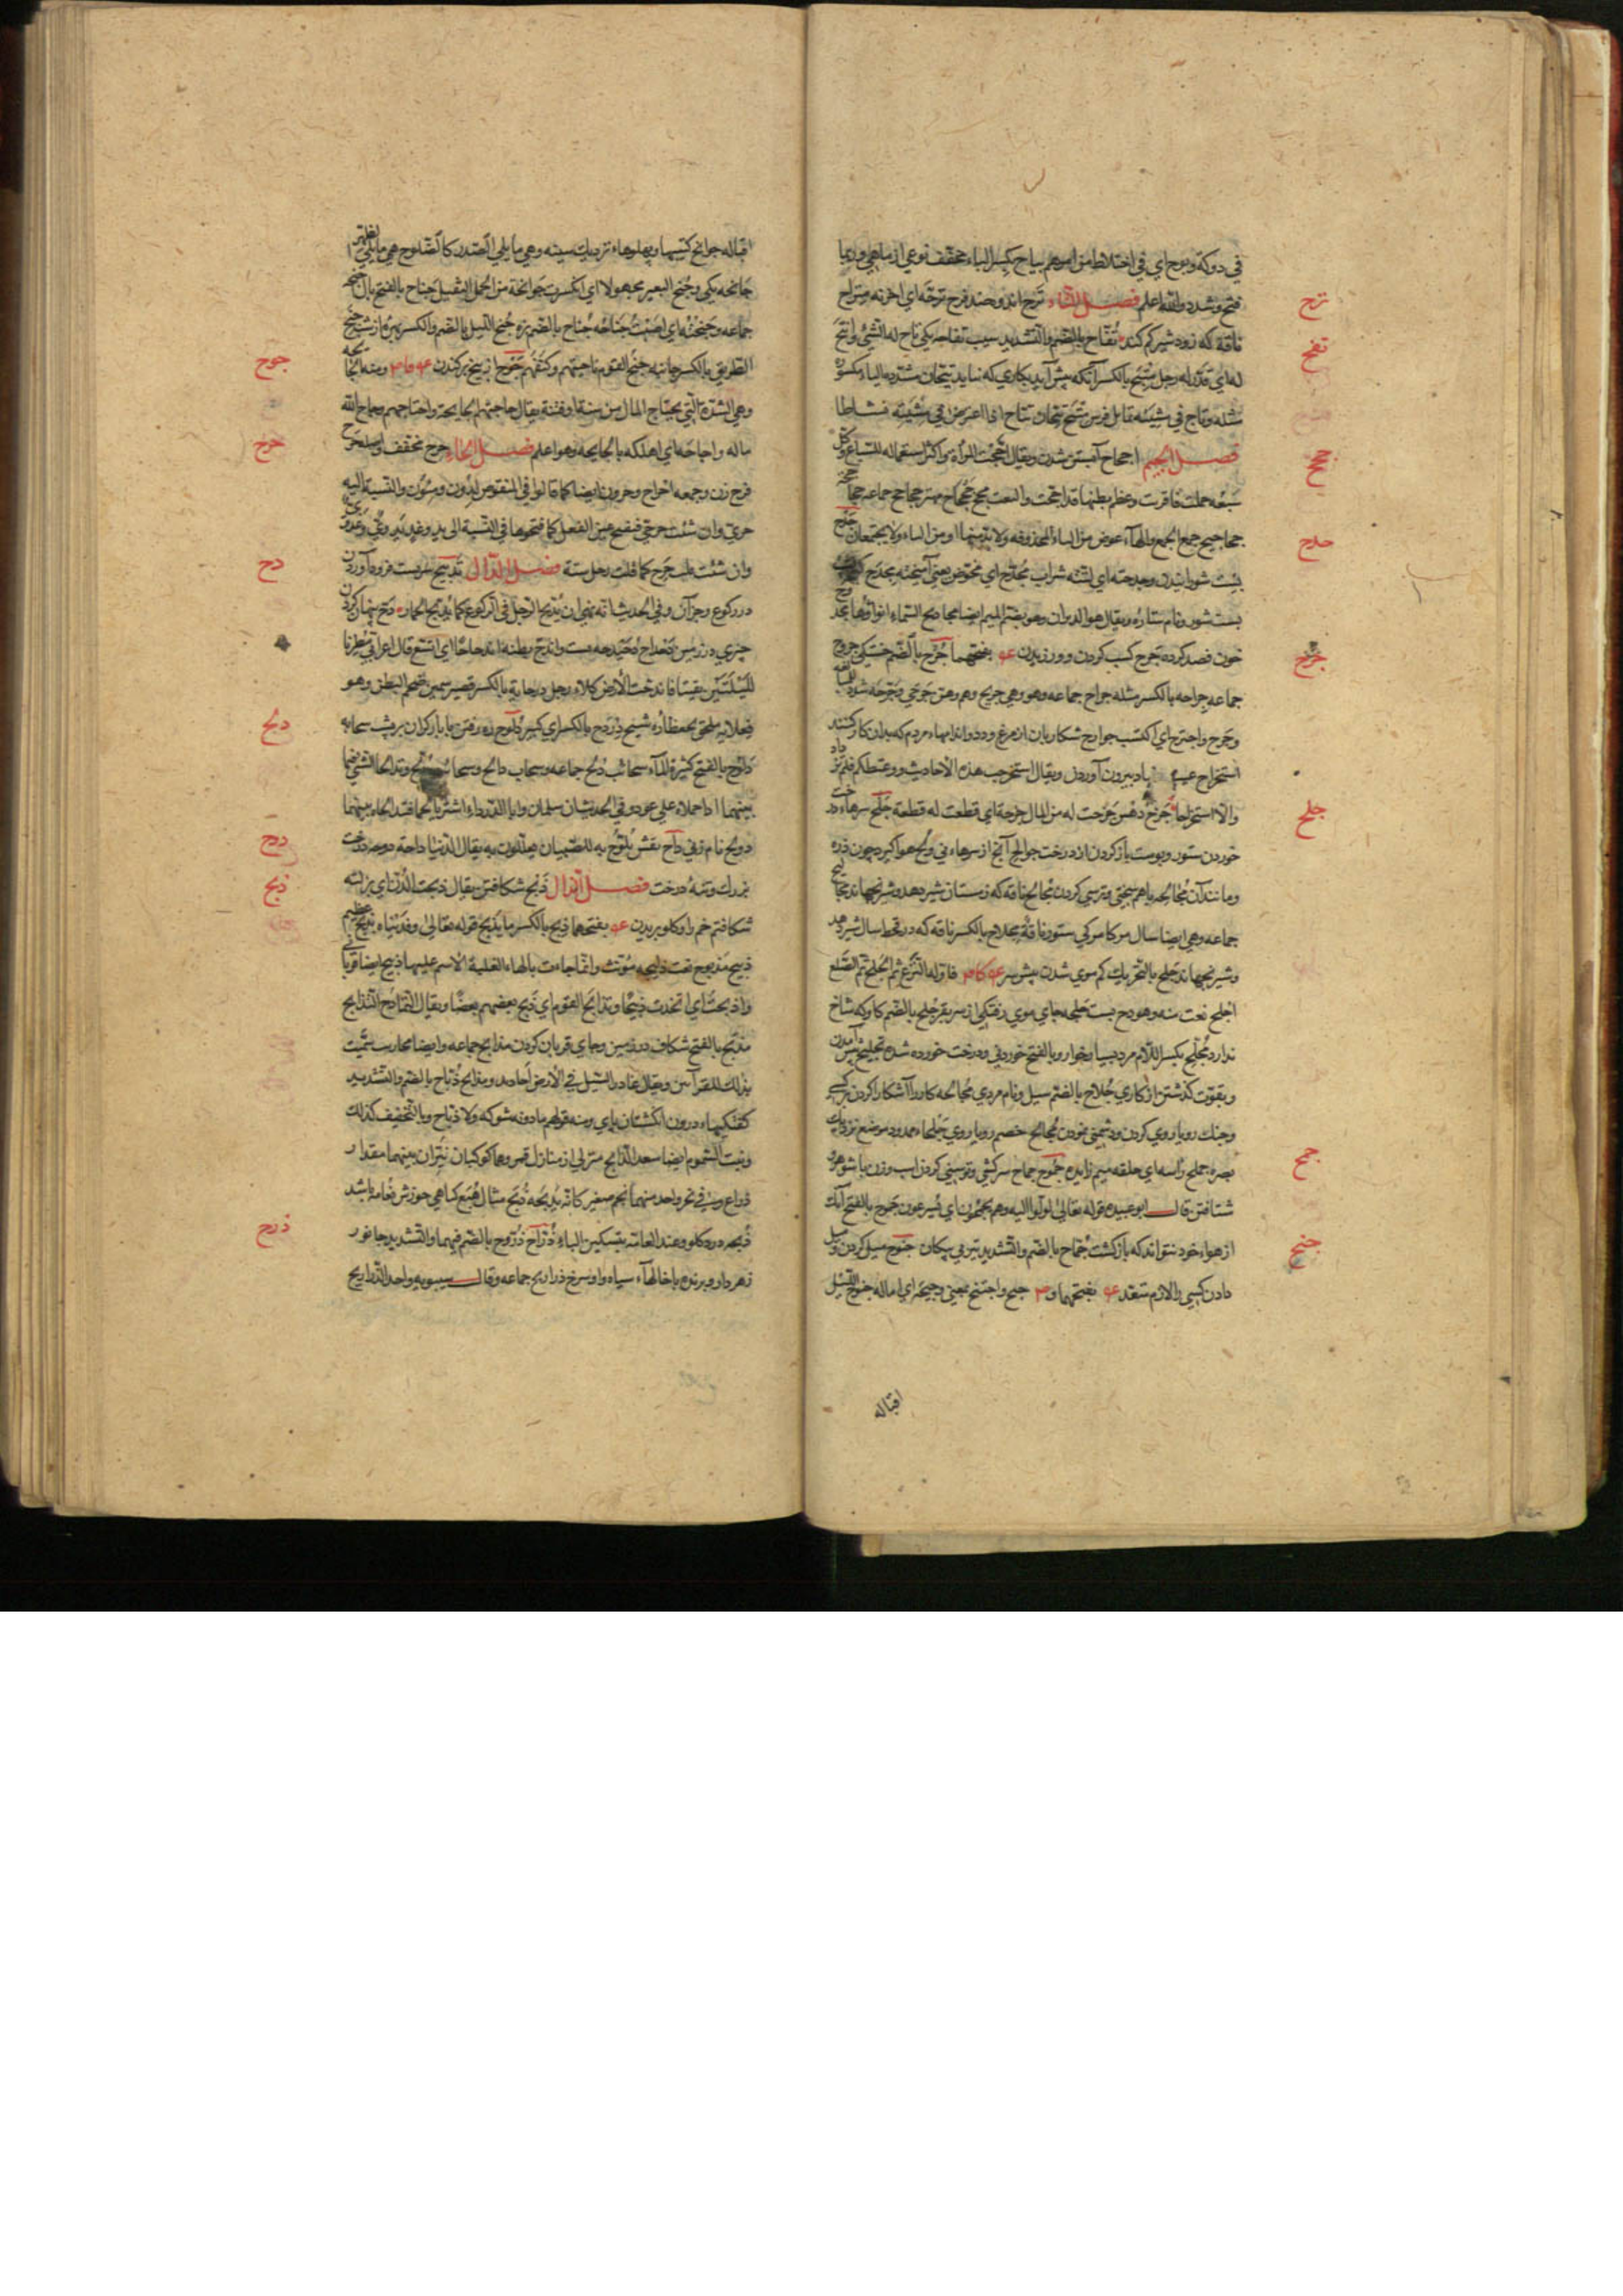 في دوكة وبوح اي في اختلاط من امرهم بياح بكسر الباء مخفف نوعي از ماهي وربما
فتح وشدد والله اعلم فصل التاء ترح اندوه ضد فرح ترحه اي احزنه متراح
ناقة كه زود شير كم كند تفاح بالضم والتشديد سيب تفاحه يكي تاح له الشئ واتيح
له اي قدر له رجل متيح بالكسر آنكه پيش آيد بكاري كه نبايد تيحان مشدده الياء مكسوره
مثله وتاح في مشيته تمايل فرس متيح تيحان وتياح اذا اعترض في مشيته نشاطا
فصل الجيم اجحاح آبستن شدن ويقال اجحت المرأة واكثر استعماله للسباع وكل
سبعه حملت فاقربت وعظم بطنها قد اجحت والنعت مجح جحجاح مهتر جحاجح جماعه جحاجحة
جحاجيح جمع الجمع والهاء عوض من الياء المحذوفه ولا بد منها او من الياء ولا يجتمعان جدح
پست شورانيدن وجدحته اي لتته شراب مجدح اي مخوض يعني آميخته مجدح
پست شور ونام ستاره ويقال هو الدبران وهو بضم الميم ايضا مجاديح السماء انواؤها مجدوح
خون فصد كرده جرح كسب كردن وورزيدن بفتحهما جرح بالضم خستكي جروح
جماعه جراحه بالكسر مثله جراح جماعه وهو وهي جريح وهم وهن جرحى وجرحه شدد للمبالغه
وجرح واجترح اي اكتسب جوارح شكاريان از مرغ ودد واندامهاء مردم كه بدان كار كنند
استخراج عيب بيرون آوردن ويقال استخرجت هذه الاحاديث ووعظتكم فلم تزداد
والا استجراحا جزح دهش جزحت له من المال جزحة اي قطعت له قطعة جلح سرهاء درخت
خوردن ستور وپوست باز كردن از درخت جوالح آنچ از سرهاء ني وبخ هوا گيرد چون ذره
ومانند آن مجالحه باهم سختي وترسي كردن مجالح ناقه كه زمستان شير دهد وشرنجهاند مجاليح
جماعه وهي ايضا سال مركامركي ستور ناقة مجلاح بالكسر ناقه كه در قحط سال شير دهد
وشير نجهاند جلح بالتحريك كم موي شدن پيش سر فاوله النزع ثم الجلح ثم الصلع
اجلح نعت منه وهودج پست جلحه جاي موي رفتكي از سر بقر جلح بالضم كاو كه شاخ
ندارد مجلح بكسر اللام مرد بسيار خوار وبالفتح خوردني ودرخت خورده شده تجليح پيش آمدن
وبقوت كذشتن از كاري جلاح بالضم سيل ونام مردي مجالحه كار را آشكارا كردن بر كسي
وجنك روياروي كردن ودشمني نمودن مجالح خصم روياروي جلحاء ممدود موضع نزديك
بصره جملح رأسه اي حلقه ميم زايده جموح جماح سركشي وتوسني كردن اسب وزن با شوهر
شتافتن قال ابو عبيده قوله تعالى لولوا اليه وهم يجمحون اي يسرعون جموح بالفتح آنك
از هواء خود نتواند كه بازكشت جماح بالضم والتشديد تير بي پيكان جنوح ميل كردن وميل
دادن كسي را لازم متعد بفتحهما و جنح واجتنح بمعني وجنحه اي اماله جنوح الليل
اقباله
ترح
تفح
جحح
جدح
جرح
جلح
جمح
جنح
اقباله جوانح كتيها وپهلوهاء نزديك سينه وهي مايلي الصدر كالضلوع هي مايلي الظهر
جانحه يكي وجنح البعير مجهولا اي انكسرت جوانحه من الحمل الثقيل جناح بالفتح بال اجنحه
جماعه وجنحته اي اصبت جناحه جناح بالضم بزه جنح الليل بالضم والكسر بهره از شب جنح
الطريق بالكسر جانبه جنح القوم ناحيتهم وكنفهم جوح از بيخ بركندن ومنه الجائحه
وهي الشدة التي يجتاح المال من سنة او فتنة يقال جاحتهم الجايحة واجتاحتهم وجاح الله
ماله واجاحه اي اهلكه بالجايحه وهو اعلم فصل الحاء حرح مخفف واصله حرح
فرج زن وجمعه احراح وحرون ايضا كما قالوا في المنقوص لدون ومئون والنسبة اليه
حري وان شئت حرحي فبفتح عين الفعل كما فتحوها في النسبة الى يد وغد يدوي وغدوي
وان شئت قلت حرح كما قلت رجل سته فصل الدال تدبيح سر پست فرود آوردن
در ركوع وجز آن وفي الحديث انه نهى ان يدبح الرجل في الركوع كما يدبح الحمار دح پنهان كردن
چيزي در زمين دحداح دحيدحه پست واندح بطنه اندحاحا اي اتسع قال اعرابي مطرنا
لليلتين بقيتا فاندحت الارض كلأ رجل درحاية بالكسر قصير سمين ضخم البطن وهو
فعلاية ملحق بجعظارة شيخ دردح بالكسر اي كبير دلوح راه رفتن با بار كران بر پشت سحابه
دلوح بالفتح كثيرة الماء سحائب دلح جماعه وسحاب دالح وسحائب دلح وتدالحا الشئ فيما
بينهما اذا حملاه على عود وفي الحديث ان سلمان وابا الدرداء اشتريا لحما فتدالحاه بينهما
دولح نام زني داح نقش يلوح به للصبيان يعللون به يقال الدنيا داحة دوحه درخت
بزرك وتنه درخت فصل الذال ذبح شكافتن يقال ذبحت الدن اي بزلته
شكافتم خم را وكلو بريدن بفتحهما ذبح بالكسر ما يذبح قوله تعالى وفديناه بذبح عظيم
ذبيح مذبوح نعت ذبيحه مؤنث وانما جاءت بالهاء لغلبة الاسم عليها ذبيح ايضا قرباني
واذبحت اي اتخذت ذبيحا وتذابح القوم اي ذبح بعضهم بعضا ويقال التمادح التذابح
مذبح بالفتح شكاف در زمين وجاي قربان كردن مذابح جماعه وايضا محاريب سميت
بذلك للقرابين ويقال غادر السيل في الارض اخاديد ومذابح ذباح بالضم والتشديد
كفتكيهاء درون انكشتان پاي ومنه قولهم ما دونه شوكه ولا ذباح وبالتخفيف كذلك
ونبت السموم ايضا سعد الذابح منزلي از منازل قمر وهما كوكبان نيران بينهما مقدار
ذراع وفي نحر واحد منهما نجم صغير كانه يذبحه ذبح مثال هبع كياهي خورش نعامه باشد
ذبحه درد كلو وعند العامة بتسكين الباء ذراح ذروح بالضم فيهما والتشديد جانور
زهردار وپرنده با خالهاء سياه واو سرخ ذراريح جماعه وقال سيبويه واحد الذراريح
جوح
حرح
دح
دلح
دوح
ذبح
ذرح